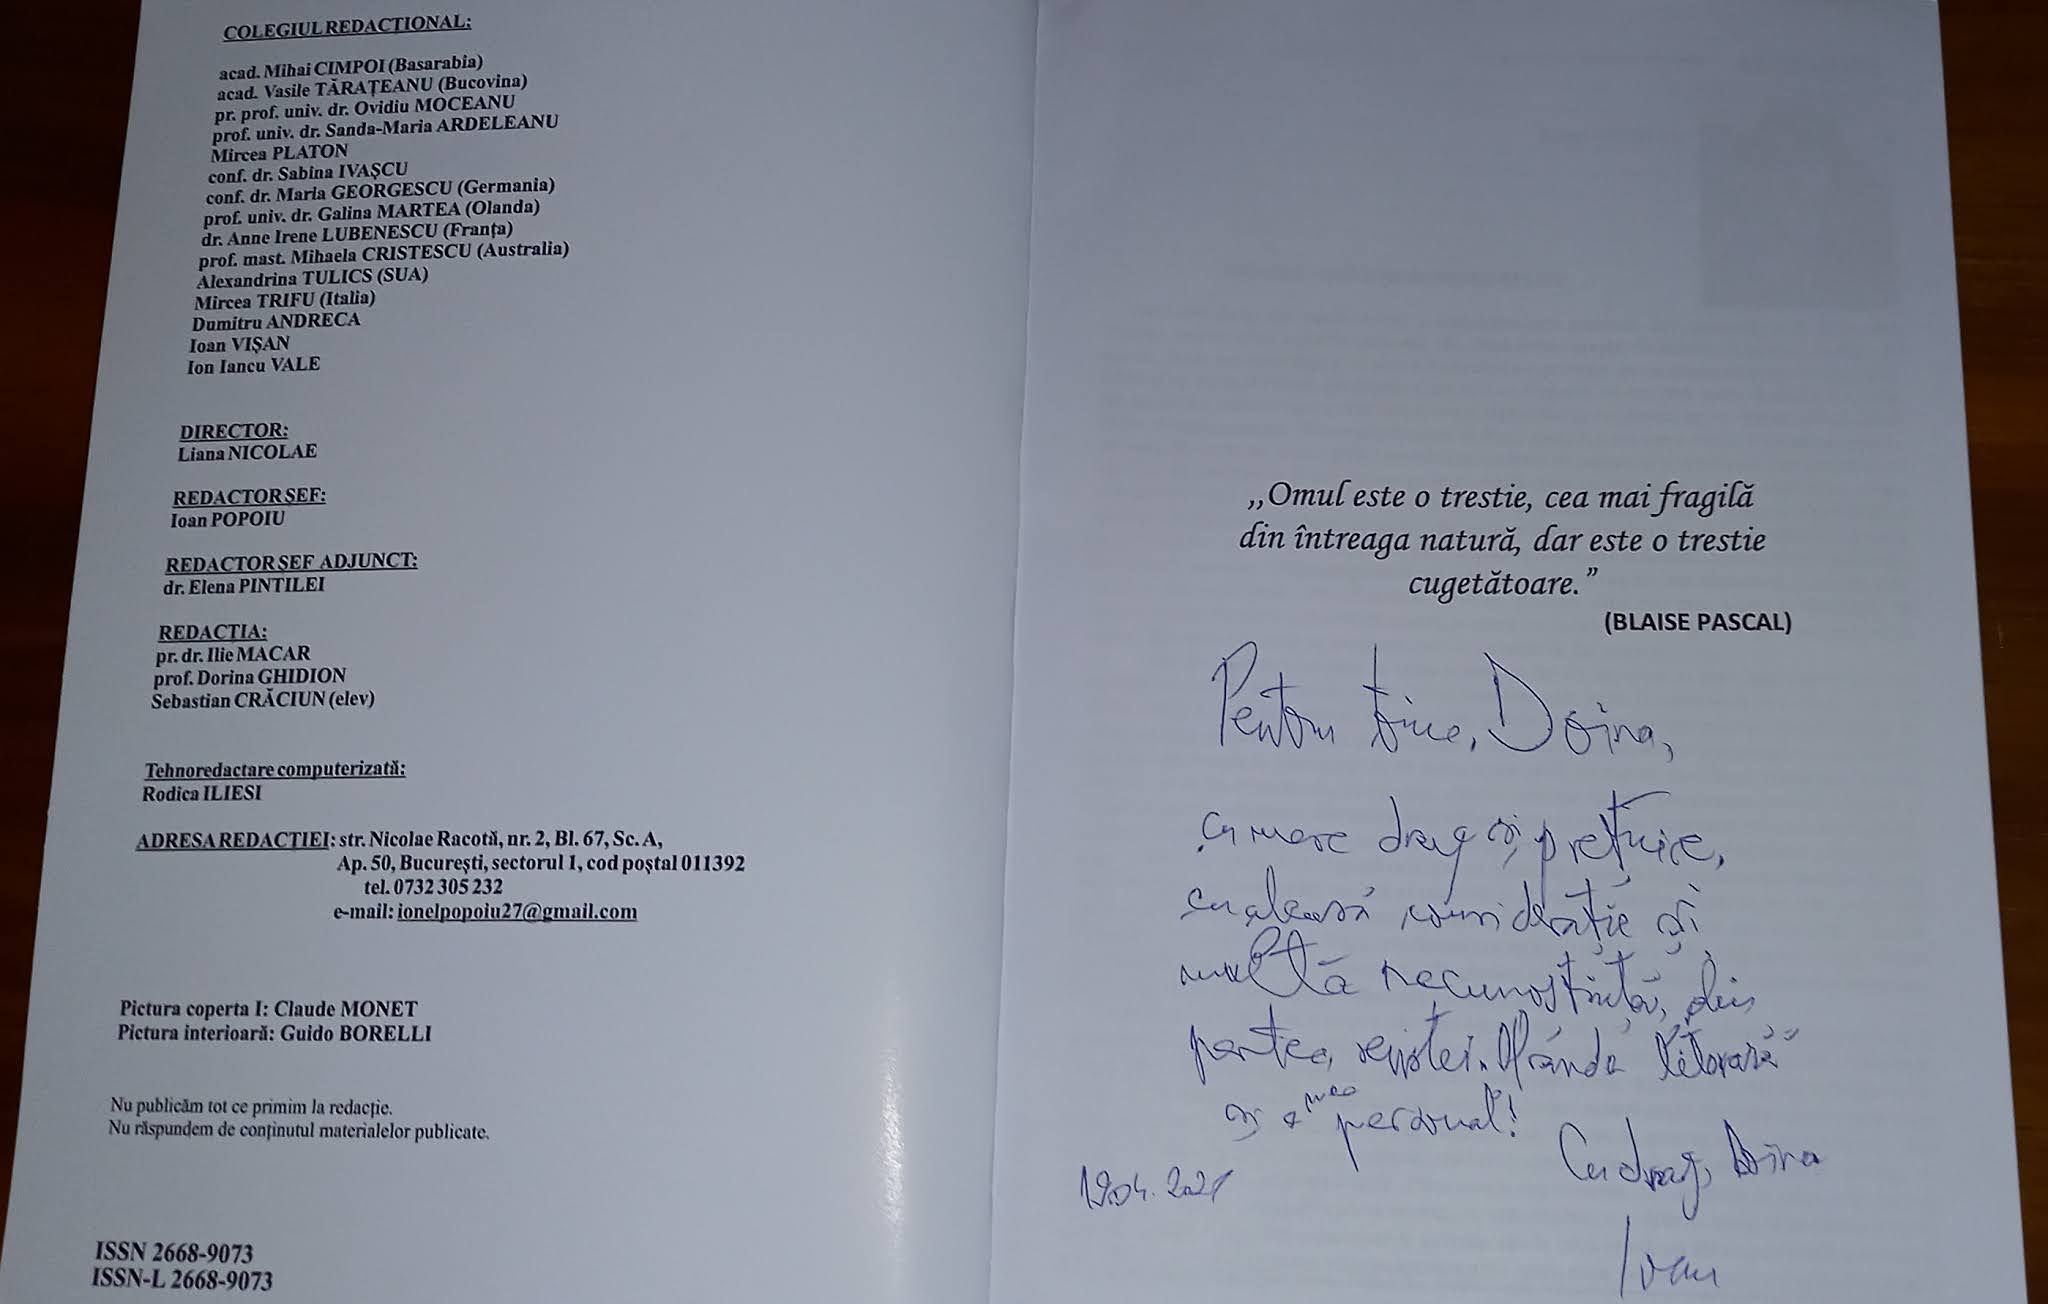 COLEGIUL REDACȚIONAL:
acad. Mihai CIMPOI (Basarabia)
acad. Vasile TĂRÂȚEANU (Bucovina)
pr. prof. univ. dr. Ovidiu MOCEANU
prof. univ. dr. Sanda-Maria ARDELEANU
Mircea PLATON
conf. dr. Sabina IVAȘCU
conf. dr. Maria GEORGESCU (Germania)
prof. univ. dr. Galina MARTEA (Olanda)
dr. Anne Irene LUBENESCU (Franța)
prof. mast. Mihaela CRISTESCU (Australia)
Alexandrina TULICS (SUA)
Mircea TRIFU (Italia)
Dumitru ANDRECA
Ioan VIȘAN
Ion Iancu VALE
DIRECTOR:
Liana NICOLAE
REDACTOR ȘEF:
Ioan POPOIU
REDACTOR ȘEF ADJUNCT:
dr. Elena PINTILEI
REDACȚIA:
pr. dr. Ilie MACAR
prof. Dorina GHIDION
Sebastian CRĂCIUN (elev)
Tehnoredactare computerizată:
Rodica ILIESI
ADRESA REDACȚIEI: str. Nicolae Racotă, nr. 2, Bl. 67, Sc. A,
Ap. 50, București, sectorul 1, cod poștal 011392
tel. 0732 305 232
e-mail: ionelpopoiu27@gmail.com
Pictura coperta I: Claude MONET
Pictura interioară: Guido BORELLI
Nu publicăm tot ce primim la redacție.
Nu răspundem de conținutul materialelor publicate.
ISSN 2668-9073
ISSN-L 2668-9073
,,Omul este o trestie, cea mai fragilă
din întreaga natură, dar este o trestie
cugetătoare.”
(BLAISE PASCAL)
Pentru tine, Doina,
cu mare drag și prețuire,
cu aleasă considerație și
multă recunoștință, din
partea revistei „Ofrandă literară”
și a mea personal!
Cu drag, Doina
19.04.2021
Ioan